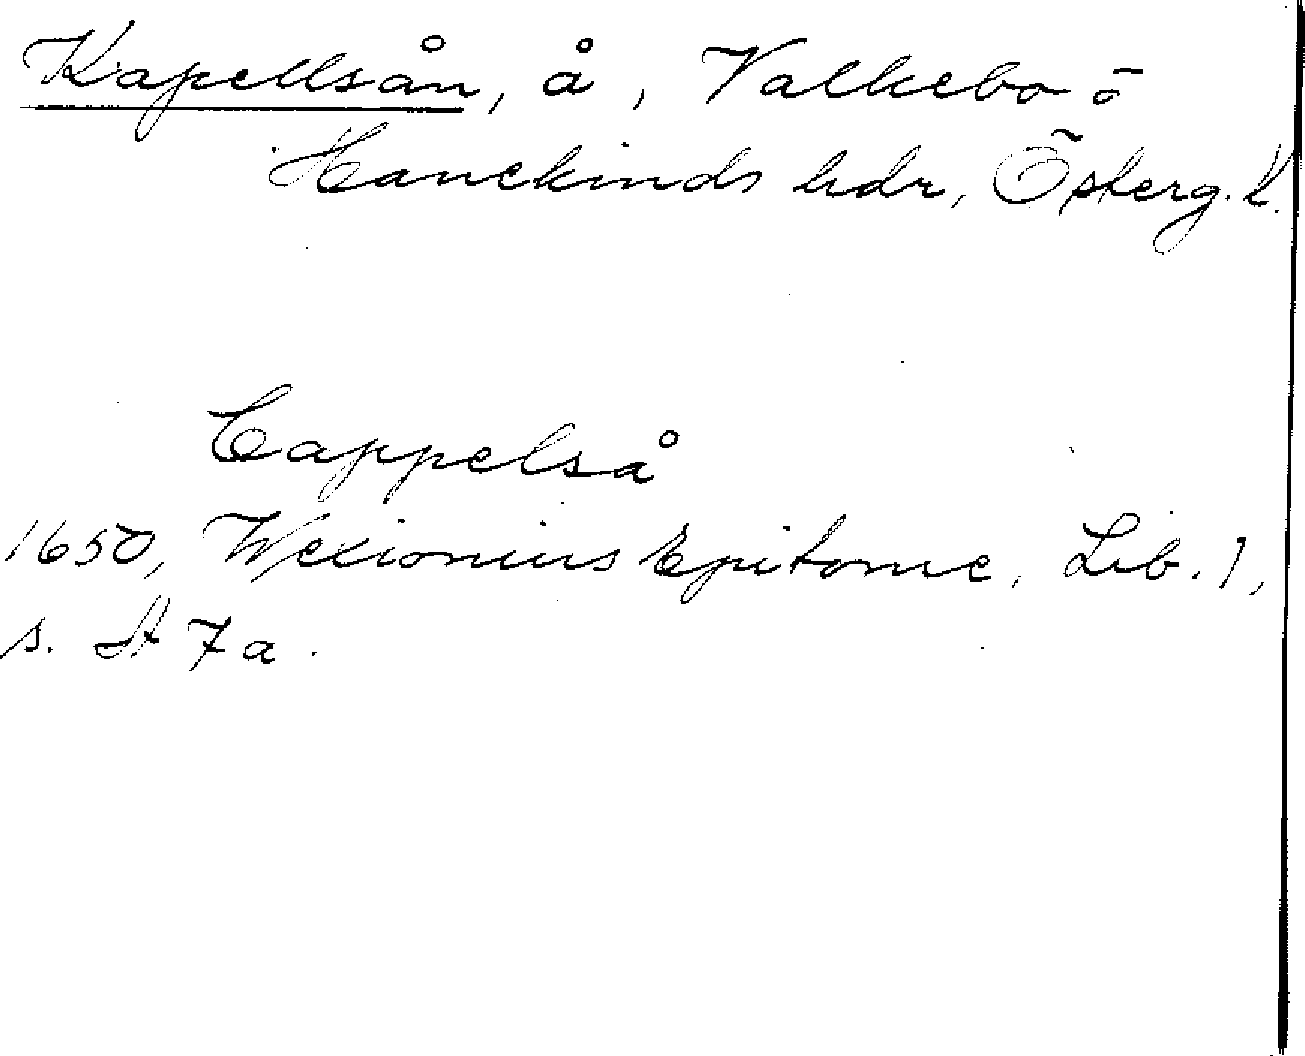 Kapellsån, å, Valkebo o
Hanekinds hdr, Österg. l.
Cappelså
1650, Wexionius Epitome, Lib. 1,
s. A 7 a.